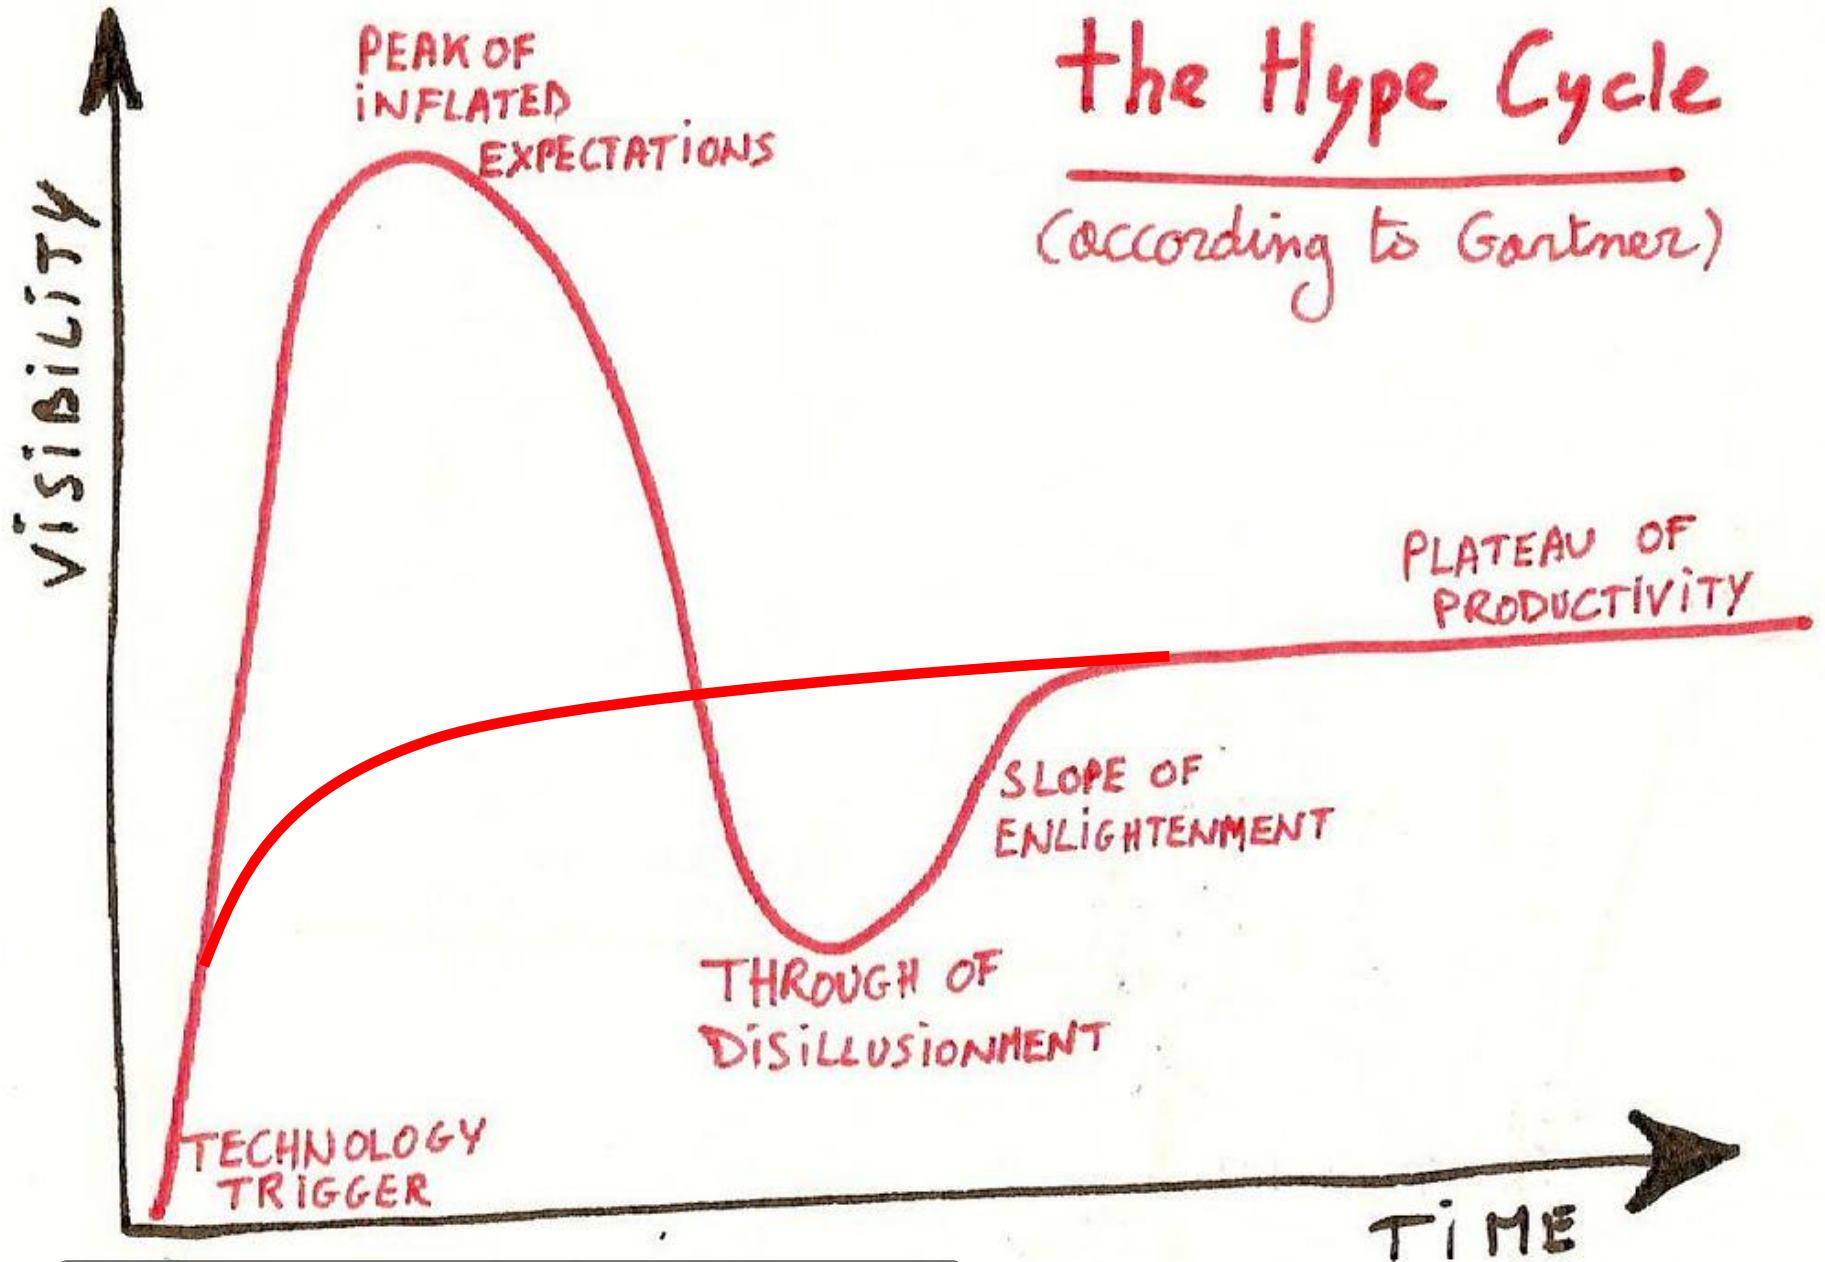 the Hype Cycle
(according to Gartner)
PEAK OF
iNFLATED
EXPECTATiONS
ViSiBiLiTY
PLATEAU OF
PRODUCTIViTY
SLOPE OF
ENLiGHTENMENT
THROUGH OF
DiSiLLUSiONMENT
TECHNOLOGY
TRiGGER
TiME